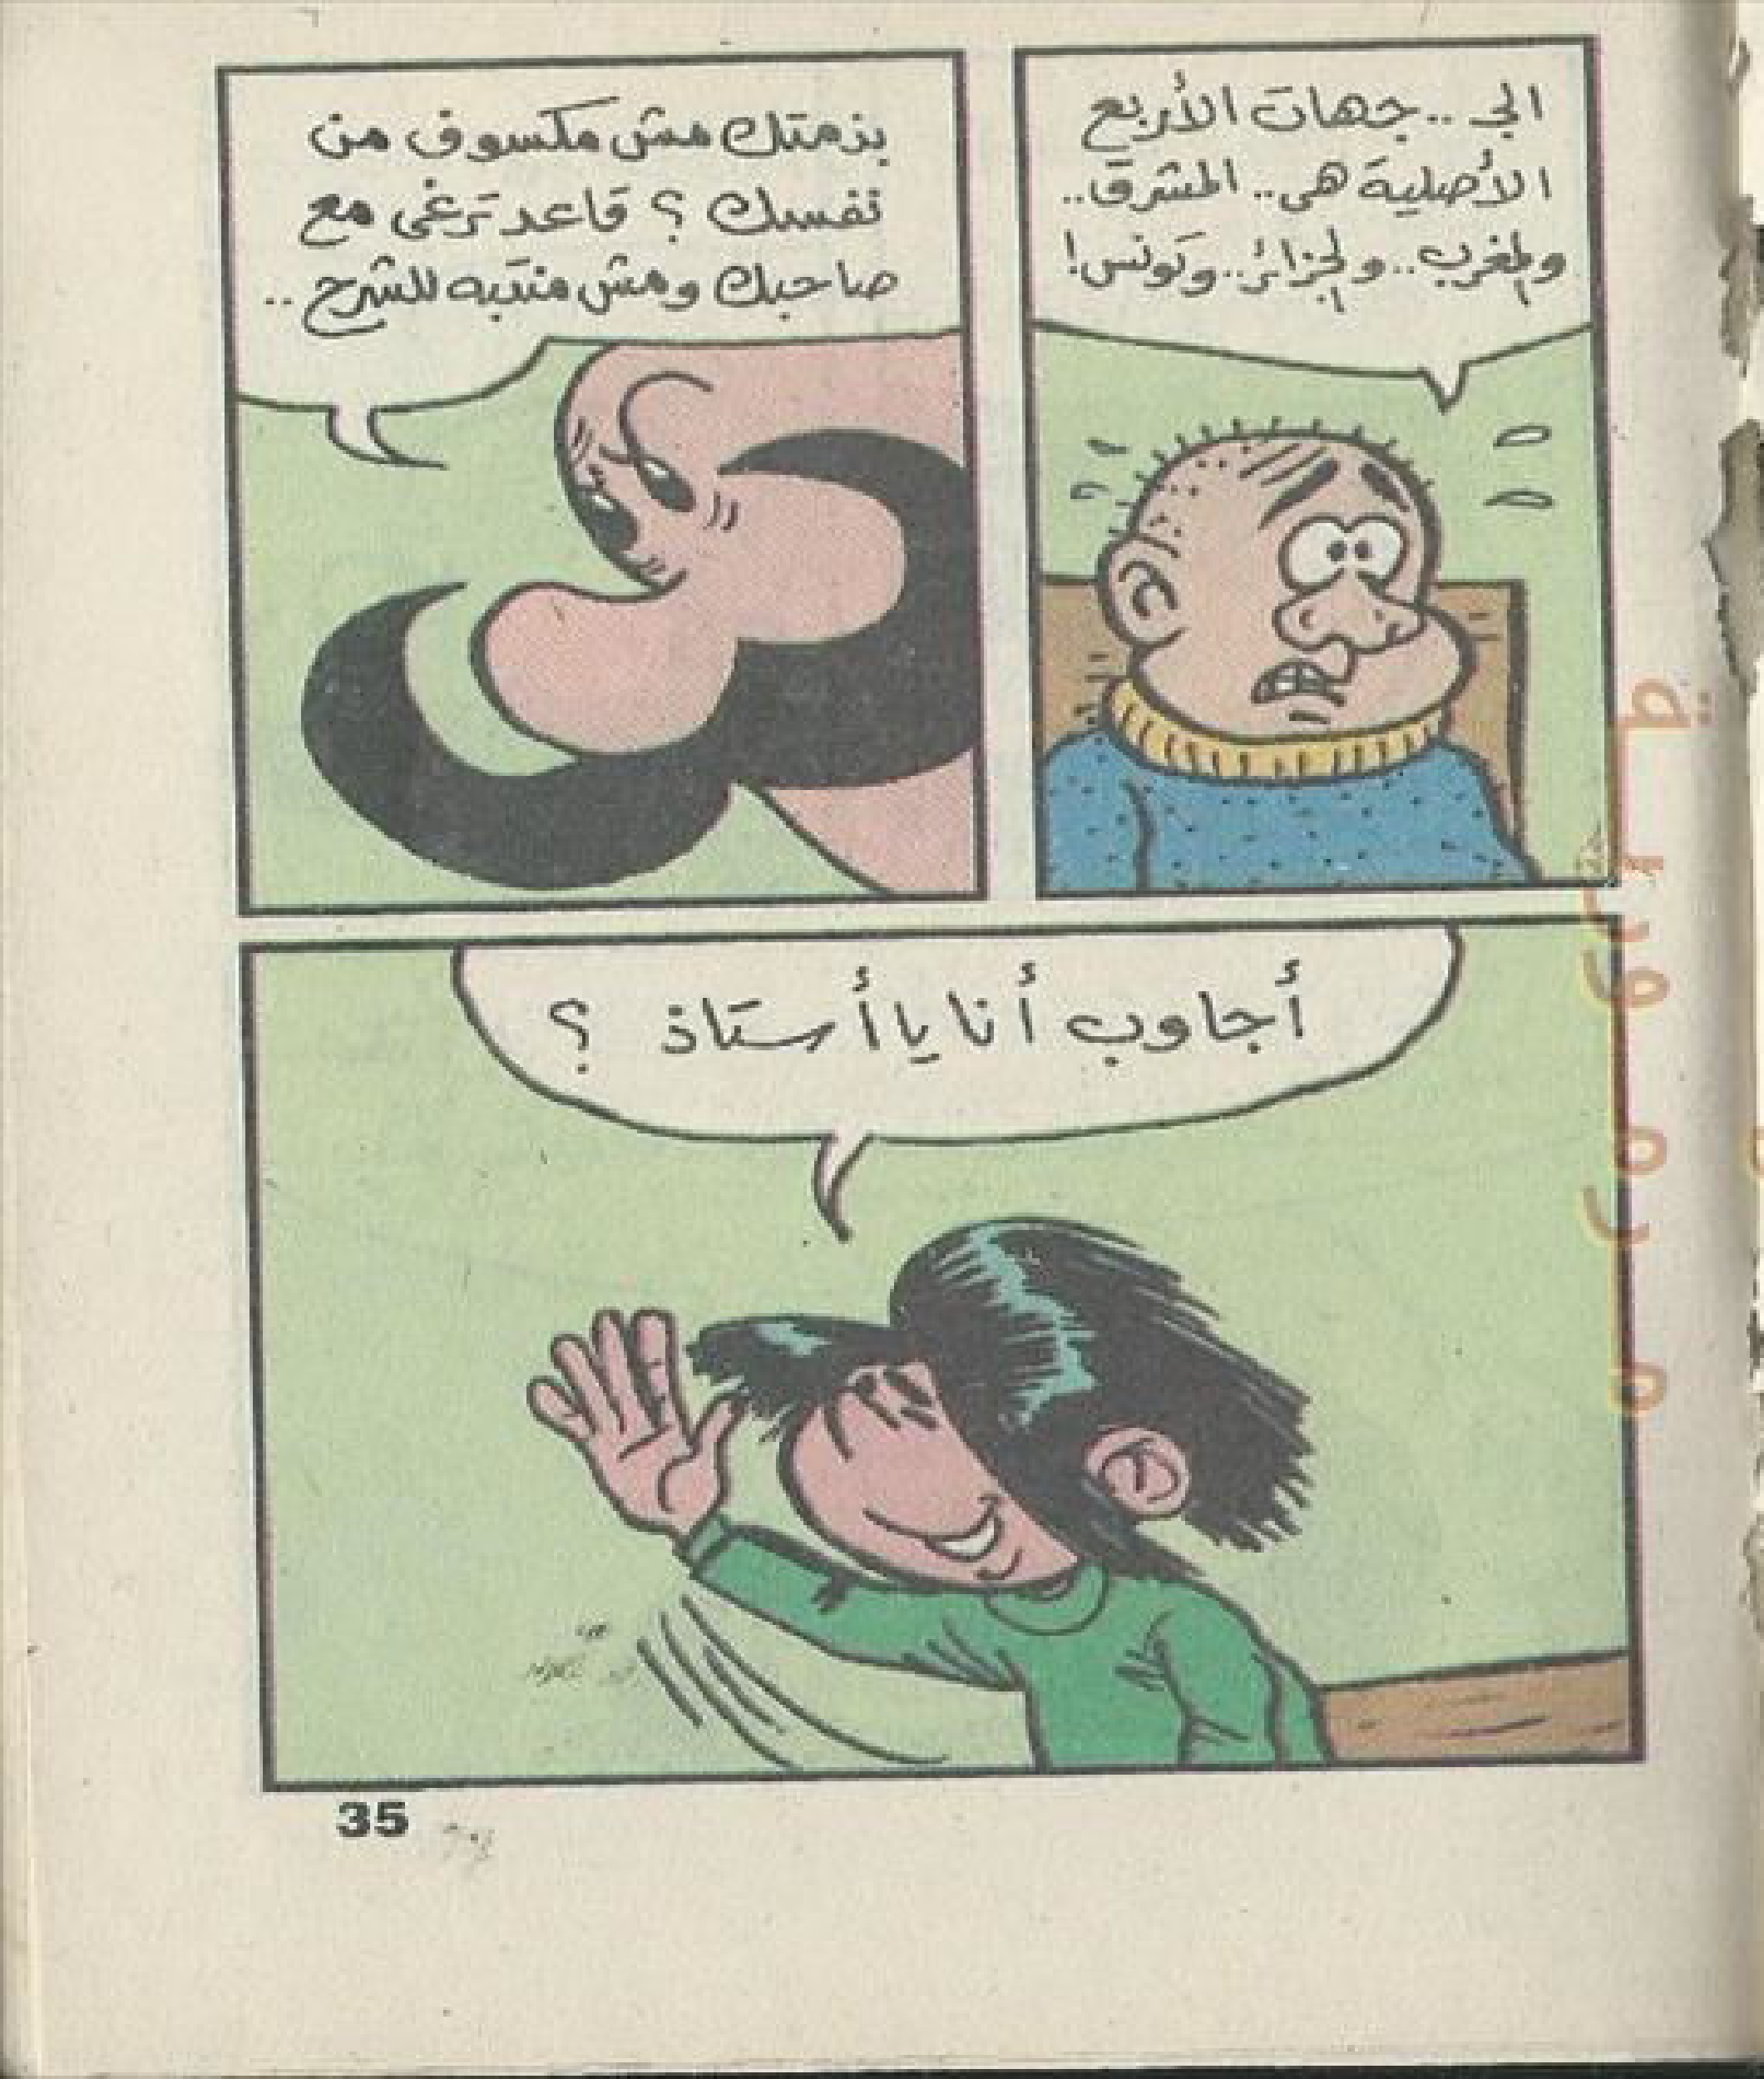 الجـ .. جهات الأربع
الأصلية هى.. المشرق..
والمغرب.. والجزائر.. وتونس!
بذمتك مش مكسوف من
نفسك ؟ قاعد ترغى مع
صاحبك ومش منتبه للشرح ..
أجاوب أنا يا أستاذ ؟
35